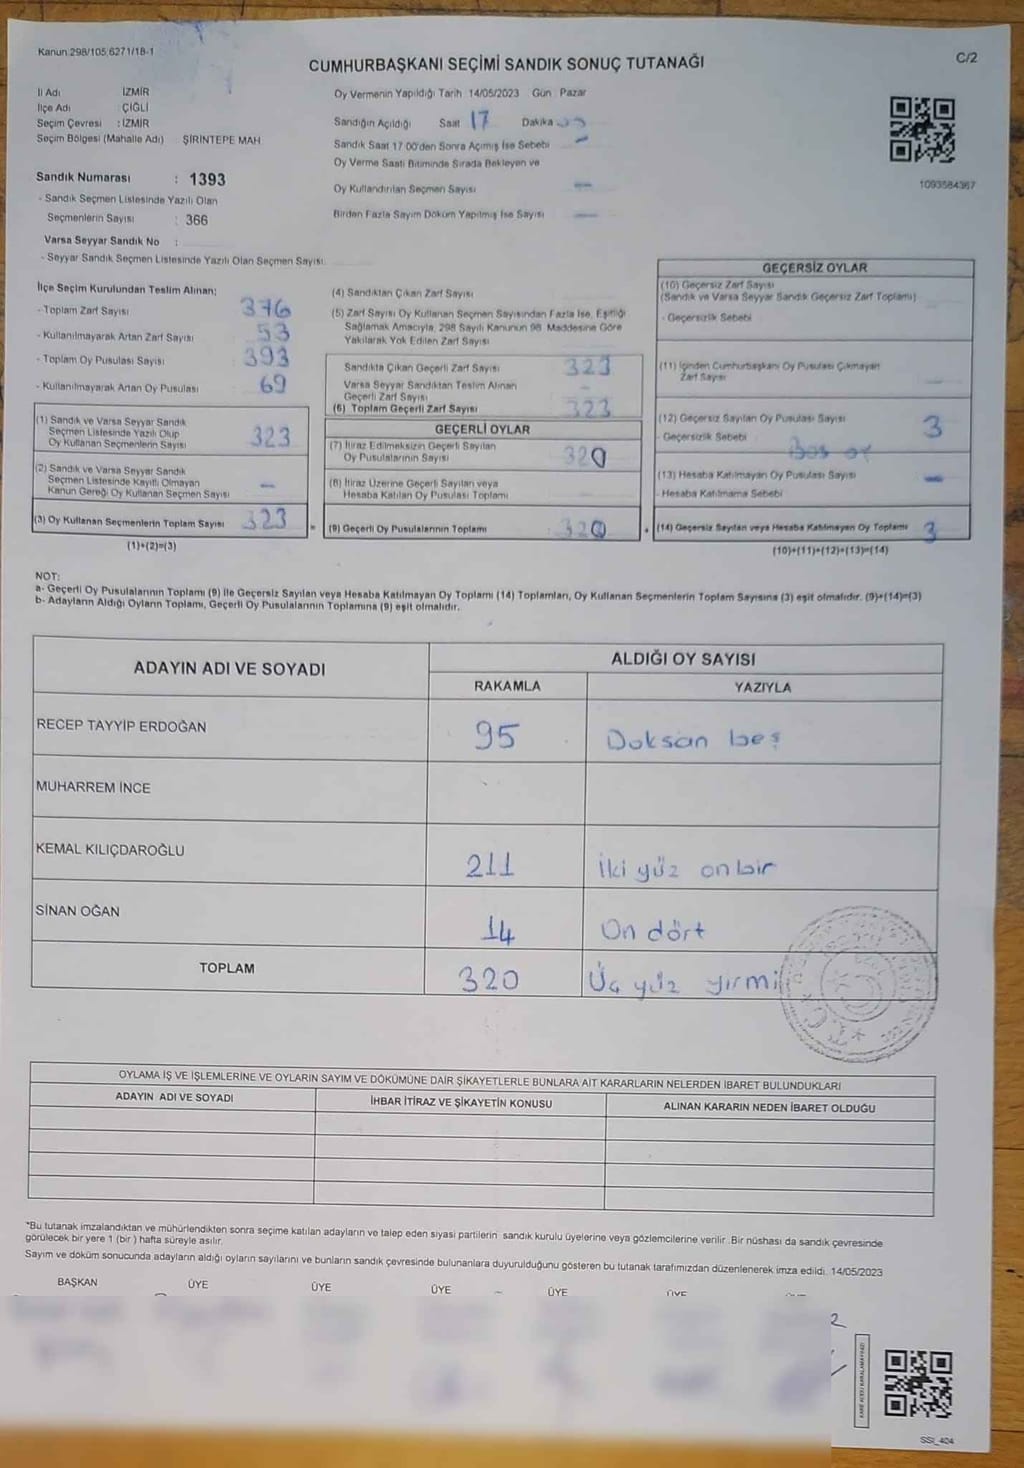 Kanun 298/105,6271/1B-1
C/2
CUMHURBAŞKANI SEÇİMİ SANDIK SONUÇ TUTANAĞI
İl Adı İZMİR
İlçe Adı ÇİĞLİ
Seçim Çevresi : İZMİR
Seçim Bölgesi (Mahalle Adı) ŞİRİNTEPE MAH
Sandık Numarası : 1393
- Sandık Seçmen Listesinde Yazılı Olan
Seçmenlerin Sayısı : 366
Varsa Seyyar Sandık No :
- Seyyar Sandık Seçmen Listesinde Yazılı Olan Seçmen Sayısı
Oy Vermenin Yapıldığı Tarih : 14/05/2023 Gün : Pazar
Sandığın Açıldığı Saat 17 Dakika
Sandık Saat 17 00'den Sonra Açılmış İse Sebebi –
Oy Verme Saati Bitiminde Sırada Bekleyen ve
Oy Kullandırılan Seçmen Sayısı –
Birden Fazla Sayım Döküm Yapılmış İse Sayısı –
1093584367
İlçe Seçim Kurulundan Teslim Alınan;
- Toplam Zarf Sayısı 376
- Kullanılmayarak Artan Zarf Sayısı 53
- Toplam Oy Pusulası Sayısı 393
- Kullanılmayarak Artan Oy Pusulası 69
(1) Sandık ve Varsa Seyyar Sandık
Seçmen Listesinde Yazılı Olup
Oy Kullanan Seçmenlerin Sayısı 323
(2) Sandık ve Varsa Seyyar Sandık
Seçmen Listesinde Kayıtlı Olmayan
Kanun Gereği Oy Kullanan Seçmen Sayısı –
(3) Oy Kullanan Seçmenlerin Toplam Sayısı 323 =
(1)+(2)=(3)
(4) Sandıktan Çıkan Zarf Sayısı
(5) Zarf Sayısı Oy Kullanan Seçmen Sayısından Fazla İse, Eşitliği
Sağlamak Amacıyla, 298 Sayılı Kanunun 98. Maddesine Göre
Yakılarak Yok Edilen Zarf Sayısı
Sandıkta Çıkan Geçerli Zarf Sayısı 323
Varsa Seyyar Sandıktan Teslim Alınan
Geçerli Zarf Sayısı –
(6) Toplam Geçerli Zarf Sayısı 323
GEÇERLİ OYLAR
(7) İtiraz Edilmeksizin Geçerli Sayılan
Oy Pusulalarının Sayısı 320
(8) İtiraz Üzerine Geçerli Sayılan veya
Hesaba Katılan Oy Pusulası Toplamı
(9) Geçerli Oy Pusulalarının Toplamı 320 +
GEÇERSİZ OYLAR
(10) Geçersiz Zarf Sayısı
(Sandık ve Varsa Seyyar Sandık Geçersiz Zarf Toplamı)
- Geçersizlik Sebebi
(11) İçinden Cumhurbaşkanı Oy Pusulası Çıkmayan
Zarf Sayısı
(12) Geçersiz Sayılan Oy Pusulası Sayısı 3
- Geçersizlik Sebebi Boş oy
(13) Hesaba Katılmayan Oy Pusulası Sayısı –
- Hesaba Katılmama Sebebi
(14) Geçersiz Sayılan veya Hesaba Katılmayan Oy Toplamı 3
(10)+(11)+(12)+(13)=(14)
NOT:
a- Geçerli Oy Pusulalarının Toplamı (9) ile Geçersiz Sayılan veya Hesaba Katılmayan Oy Toplamı (14) Toplamları, Oy Kullanan Seçmenlerin Toplam Sayısına (3) eşit olmalıdır. (9)+(14)=(3)
b- Adayların Aldığı Oyların Toplamı, Geçerli Oy Pusulalarının Toplamına (9) eşit olmalıdır.
ADAYIN ADI VE SOYADI ALDIĞI OY SAYISI
RAKAMLA YAZIYLA
RECEP TAYYİP ERDOĞAN 95 Doksan beş
MUHARREM İNCE
KEMAL KILIÇDAROĞLU 211 İki yüz on bir
SİNAN OĞAN 14 On dört
TOPLAM 320 Üç yüz yirmi
OYLAMA İŞ VE İŞLEMLERİNE VE OYLARIN SAYIM VE DÖKÜMÜNE DAİR ŞİKAYETLERLE BUNLARA AİT KARARLARIN NELERDEN İBARET BULUNDUKLARI
ADAYIN ADI VE SOYADI İHBAR İTİRAZ VE ŞİKAYETİN KONUSU ALINAN KARARIN NEDEN İBARET OLDUĞU
*Bu tutanak imzalandıktan ve mühürlendikten sonra seçime katılan adayların ve talep eden siyasi partilerin sandık kurulu üyelerine veya gözlemcilerine verilir .Bir nüshası da sandık çevresinde
görülecek bir yere 1 (bir ) hafta süreyle asılır.
Sayım ve döküm sonucunda adayların aldığı oyların sayılarını ve bunların sandık çevresinde bulunanlara duyurulduğunu gösteren bu tutanak tarafımızdan düzenlenerek imza edildi. 14/05/2023
BAŞKAN ÜYE ÜYE ÜYE ÜYE ÜYE
SSİ_404